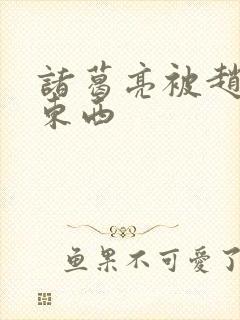 諸葛亮被趙
東西
鱼果不可愛了